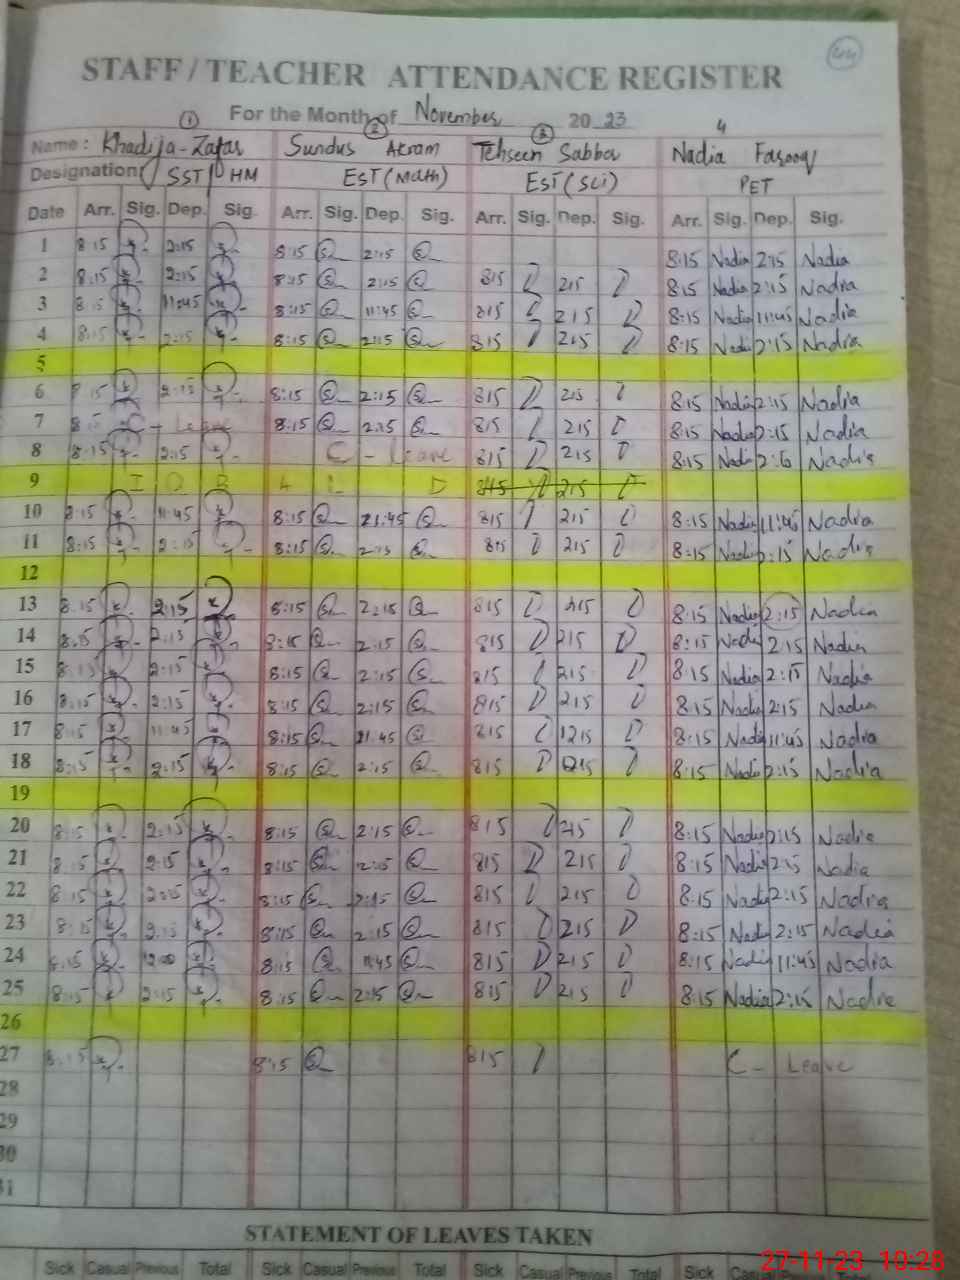 STAFF / TEACHER ATTENDANCE REGISTER
For the Month of November 2023
① ② ③ 4
Name : Khadija-Zafar Sundus Akram Tehseen Sabbor Nadia Farooq
Designation SST / HM EST (Math) EST (Sci) PET
Date Arr. Sig. Dep. Sig. Arr. Sig. Dep. Sig. Arr. Sig. Dep. Sig. Arr. Sig. Dep. Sig.
1 8:15 2:15 8:15 2:15 8:15 Nadia 2:15 Nadia
2 8:15 2:15 8:15 2:15 815 215 8:15 Nadia 2:15 Nadia
3 8:15 11:45 8:15 11:45 815 215 8:15 Nadia 11:45 Nadia
4 8:15 2:15 8:15 2:15 815 215 8:15 Nadia 2:15 Nadia
5
6 8:15 2:15 8:15 2:15 815 215 8:15 Nadia 2:15 Nadia
7 C - Leave 8:15 2:15 815 215 8:15 Nadia 2:15 Nadia
8 8:15 2:15 C - Leave 815 215 8:15 Nadia Nadia
9 I Q B A L D 845 215
10 8:15 11:45 8:15 21:45 815 215 8:15 Nadia 11:45 Nadia
11 8:15 2:15 8:15 2:15 815 215 8:15 Nadia 2:15 Nadia
12
13 8:15 2:15 8:15 2:15 815 215 8:15 Nadia 2:15 Nadia
14 8:15 2:15 8:15 2:15 815 215 8:15 Nadia 2:15 Nadia
15 8:15 2:15 8:15 2:15 815 215 8:15 Nadia 2:15 Nadia
16 8:15 2:15 8:15 2:15 815 215 8:15 Nadia 2:15 Nadia
17 8:15 11:45 8:15 11:45 815 1215 8:15 Nadia 11:45 Nadia
18 8:15 2:15 8:15 2:15 815 215 8:15 Nadia 2:15 Nadia
19
20 8:15 2:15 8:15 2:15 815 215 8:15 Nadia 2:15 Nadia
21 8:15 2:15 8:15 2:15 815 215 8:15 Nadia 2:15 Nadia
22 8:15 2:15 8:15 2:15 815 215 8:15 Nadia 2:15 Nadia
23 8:15 2:15 8:15 2:15 815 215 8:15 Nadia 2:15 Nadia
24 8:15 12:00 8:15 11:45 815 215 8:15 Nadia 11:45 Nadia
25 8:15 2:15 8:15 2:15 815 215 8:15 Nadia 2:15 Nadia
26
27 8:15 8:15 815 C - Leave
28
29
30
31
STATEMENT OF LEAVES TAKEN
Sick Casual Previous Total Sick Casual Previous Total Sick Casual Previous Total Sick
27-11-23 10:28